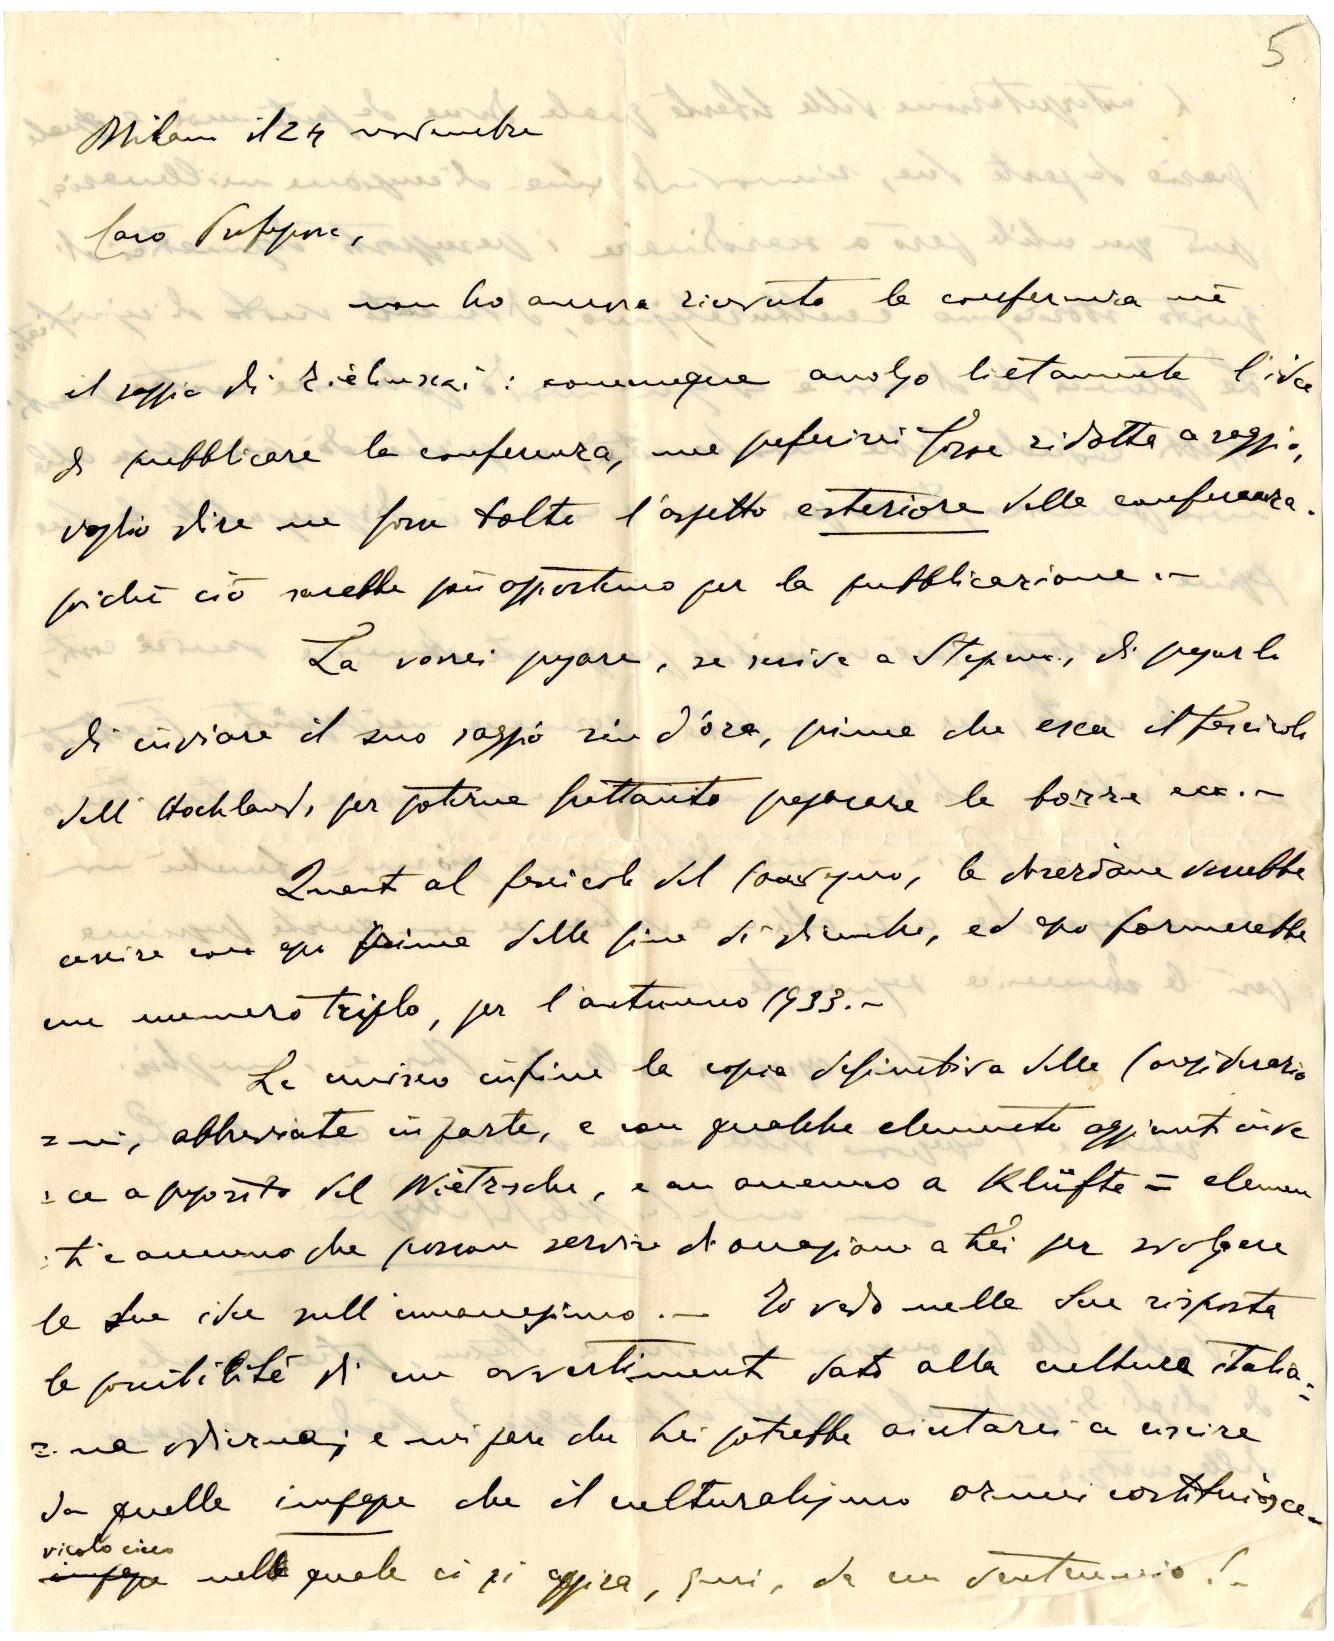 5
Milano il 24 novembre
Caro Professore,
non ho ancora ricevuto la conferenza nè
il saggio di Zielinski: comunque accolgo lietamente l'idea
di pubblicare la conferenza, ma preferirei forse ridotta a saggio,
voglio dire se fosse tolto l'aspetto esteriore della conferenza.
poichè ciò sarebbe più opportuno per la pubblicazione. –
La vorrei pregare, se scrive a Stepun, di pregarlo
di inviare il suo saggio sin d'ora, prima che esca il fascicolo
dell'Hochland, per poterne frattanto preparare le bozze ecc. –
Quanto al fascicolo del Convegno, la direzione vorrebbe
uscire con esso prima della fine di dicembre, ed esso formerebbe
un numero triplo, per l'autunno 1933. –
Le unisco infine la copia definitiva delle Considerazio
=ni, abbreviate in parte, e con qualche elemento aggiunto inve
=ce a proposito del Nietzsche, e un accenno a Klüfte = elemen
=ti e accenno che possono servire di occasione a Lei per svolgere
le Sue idee sull'umanesimo. – Io vedo nella Sua risposta
la possibilità di un avvertimento dato alla cultura italia=
=na odierna; e mi pare che Lei potrebbe aiutarci a uscire
da quella impasse che il culturalismo ormai costituisce –
vicolo cieco
impasse nella quale ci si aggira, quasi, da un ventennio! –